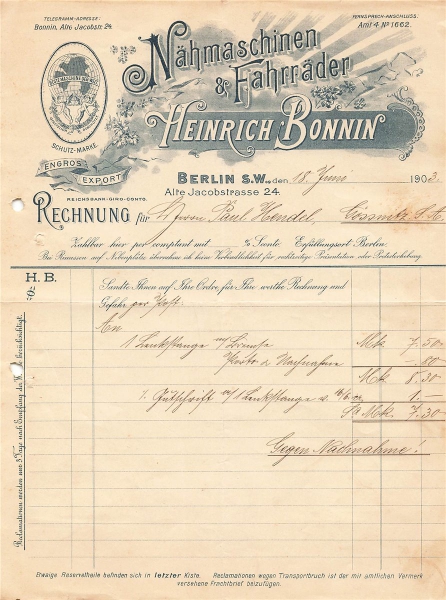 TELEGRAMM-ADRESSE:
Bonnin, Alte Jacobstr. 24.
FERNSPRECH-ANSCHLUSS.
Amt 4 No 1662.
Nähmaschinen
& Fahrräder
HEINRICH BONNIN
SCHUTZ-MARKE.
ENGROS
EXPORT
BERLIN S.W., den 18 Juni 1903.
Alte Jacobstrasse 24.
REICHSBANK-GIRO-CONTO.
RECHNUNG für Herrn Paul Hendel, Gössnitz S.A.
Zahlbar hier per comptant mit % Sconto. Erfüllungsort Berlin.
Bei Rimessen auf Nebenplätze übernehme ich keine Verbindlichkeit für rechtzeitige Präsentation oder Protesterhebung.
H. B.
Fo.
Sandte Ihnen auf Ihre Ordre, für Ihre werthe Rechnung und
Gefahr per Post.
An
1 Lenkstange m/ Bremse Mk 7,50
Porto & Nachnahme -.80
Mk 8.30
Gutschrift 1 Lenkstange 1.—
Mk. 7.30
Gegen Nachnahme!
Reclamationen werden nur 3 Tage nach Empfang der berücksichtigt.
Etwaige Reservetheile befinden sich in letzter Kiste. Reclamationen wegen Transportbruch ist der mit amtlichen Vermerk
versehene Frachtbrief beizufügen.